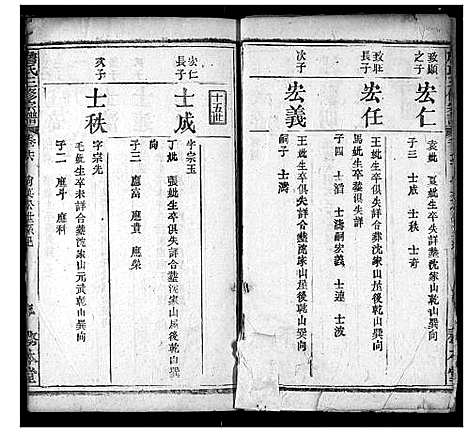 致顯之子
宏仁
袁妣 夏妣生卒失詳合葬沈家山巽向
子三 士成 士秩 士奇
致旺長子
宏任
馬妣生卒俱失詳合葬沈家山屋後乾山巽向
子四 士滔 士濤嗣宏義 士連 士波
次子
宏義
王妣生卒俱失詳合葬沈家山屋後乾山巽向
嗣子 士濤
十五世
宏仁長子
士成
字宗玉
丁妣 張妣生卒俱失詳合葬沈家山屋後乾山巽向
子三 應富 應貴 應榮
次子
士秩
字宗先
毛妣生卒未詳合葬沈家山元武乾山巽向
子二 應斗 應科
氏三修宗譜